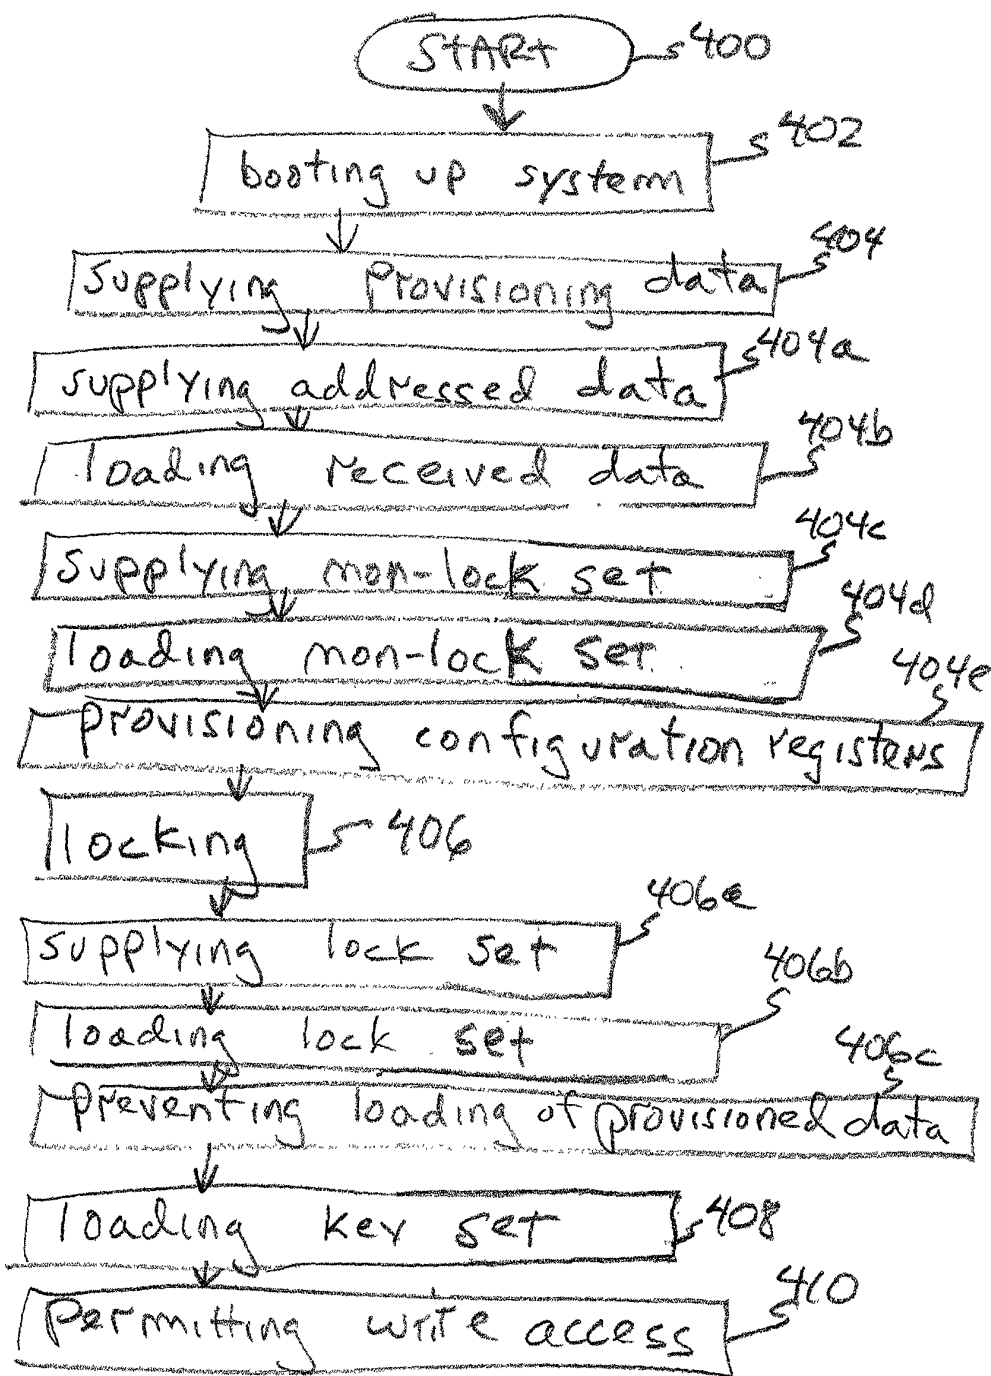 START 400
booting up system 402
supplying provisioning data 404
supplying addressed data 404a
loading received data 404b
supplying non-lock set 404c
loading non-lock set 404d
provisioning configuration registers 404e
locking 406
supplying lock set 406a
loading lock set 406b
preventing loading of provisioned data 406c
loading key set 408
permitting write access 410